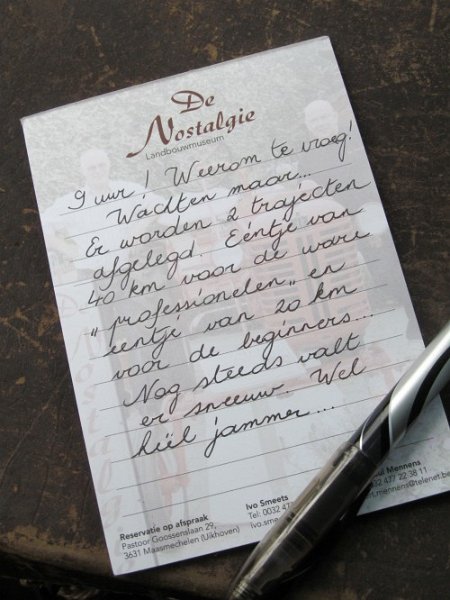 De
Nostalgie
Landbouwmuseum
9 uur! Weerom te vroeg!
Wachten maar...
Er worden 2 trajecten
afgelegd. Eéntje van
40 km voor de ware
"professionelen" en
eentje van 20 km
voor de beginners...
Nog steeds valt
er sneeuw. Wel
heel jammer...
Reservatie op afspraak
Pastoor Goossenslaan 29,
3631 Maasmechelen (Uikhoven)
Ivo Smeets
Tel: 0032 47
Ivo.sme
ul Mennens
0032 477 22 38 11
t.mennens@telenet.be